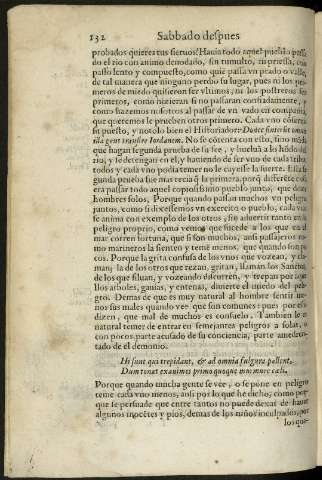 132 Sabbado despues
probados quieres tus sieruos? Hauia todo aquel pueblo passa-
do el rio con animo denodado, sin tumulto, ni priessa, con
passo lento y compuesto, como quiē passa vn prado o valle,
de tal manera que ninguno perdio su lugar, pues ni los pri-
meros de miedo quisieron ser vltimos, ni los postreros ser
primeros, como hizieran si no passaran confiadamente, y
como hazemos nosotros al passar de vn vado en compañia,
que queremos le prueben otros primero. Cada vno cōserua
su puesto, y notólo bien el Historiador: Donec
illa gens transiret Iordanem. No se cōtenta con esto, sino māda
que hagan segunda prueba de su fee, y bueluā a lo hōdo del
rio, y se detengan en el, y hauiendo de ser vno de cada tribu,
todos y cada vno podia temer no le cayesse la suerte. Esta se-
gunda prueba fue mas rezia q̄ la primera, porq̄ differēte co-
sa era passar todo aquel copiosissimo pueblo junto, que doze
hombres solos, Porque quando passan muchos vn peligro
juntos, como si dixessemos vn exercito o pueblo, cada vno
se anima con exemplo de los otros, sin aduertir tanto en el
peligro proprio, como vemos que sucede a los que en el
mar corren fortuna, que si son muchos, assi passajeros co-
mo marineros la sienten y temē menos, que quando son po-
cos. Porque la grita confusa de los vnos que vozean, y cla-
man; la de los otros que rezan, gritan, llaman los Sanctos,
de los que siluan, y vozeando discurren, y trepan por aque-
llos arboles, gauias, y entenas, diuierte el miedo del peli-
gro. Demas de que es muy natural al hombre sentir me-
nos sus males quando vee que son comunes: pues por esso
dizen, que mal de muchos es consuelo. Tambien le es
natural temer de entrar en semejantes peligros a solas, o
con pocos parte acusado de su conciencia, parte amedren-
tado de el demonio.
Hi sunt qui trepidant, & ad omnia fulgura pallent,
Dum tonat exanimes primo quoque murmure cæli.
Porque quando mucha gente se vee, o se pone en peligro
teme cada vno menos, assi por lo que he dicho, como por-
que se persuade que entre tantos no puede dexar de hauer
algunos inocētes y pios, demas de los niños inculpados, por
los que-